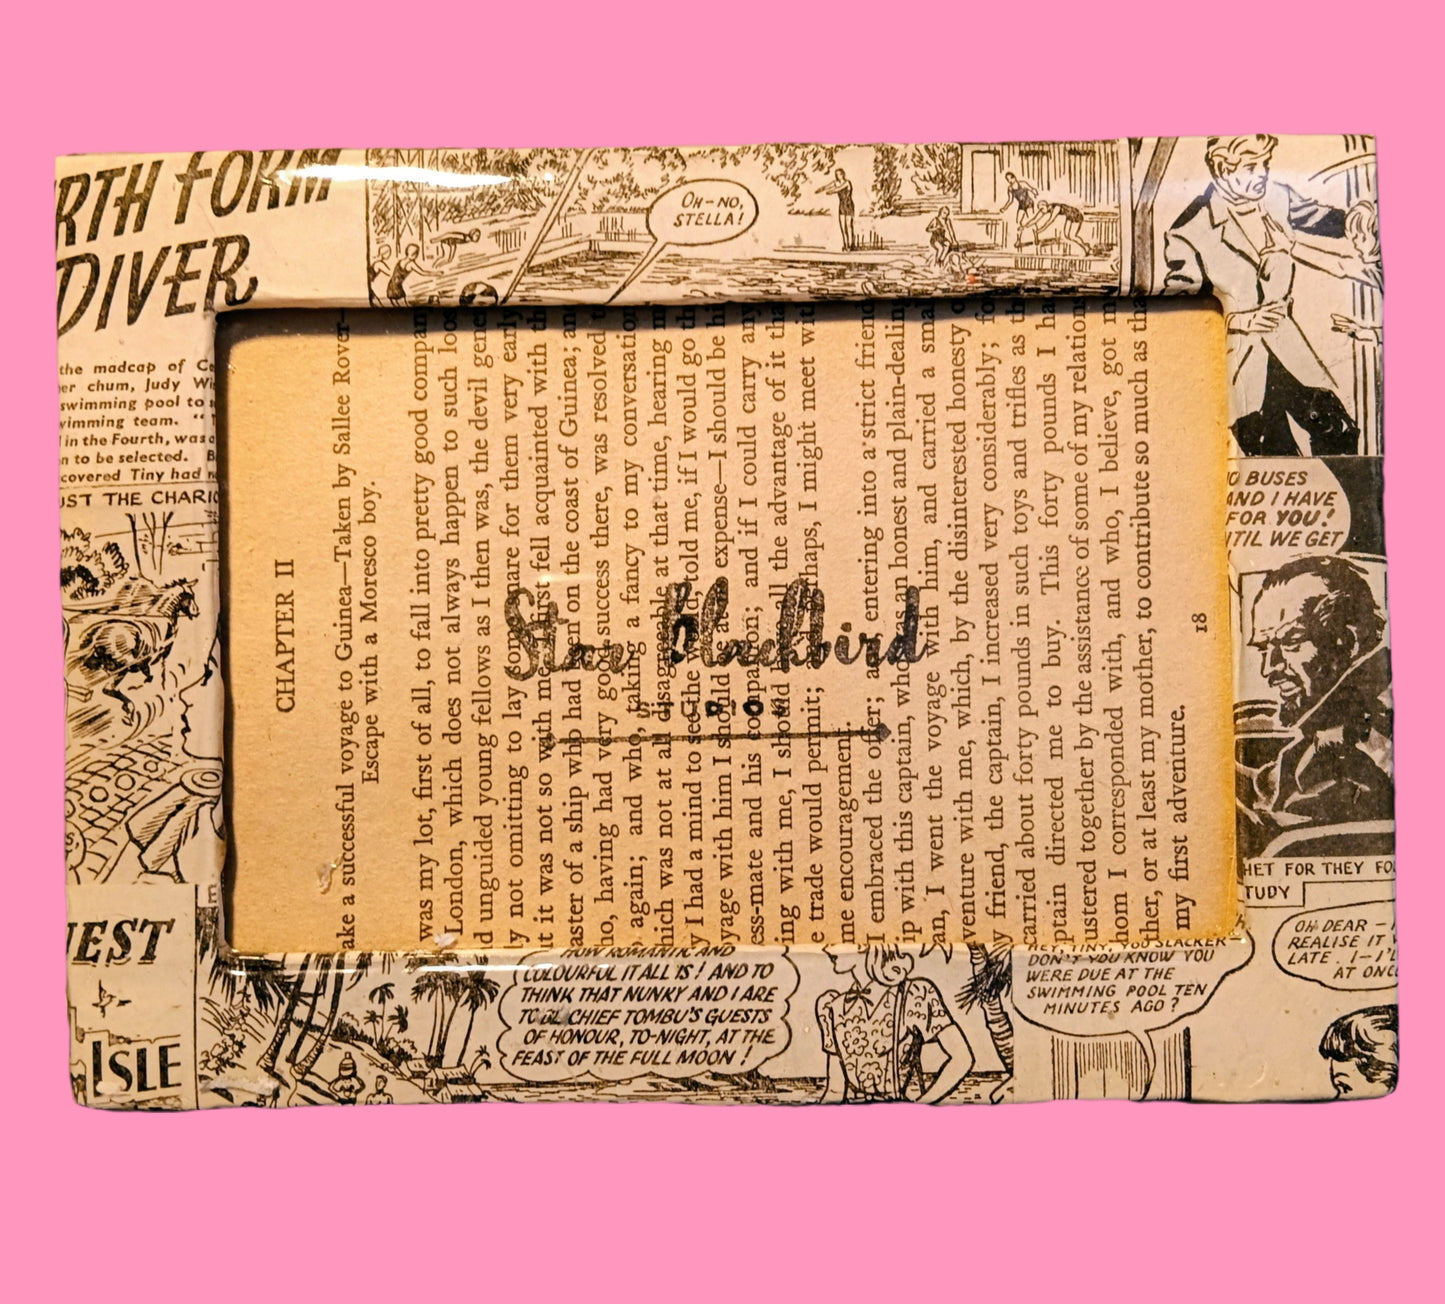 RTH FORM
DIVER
the madcap of
er chum, Judy
swimming pool to
wimming team.
in the Fourth, was
n to be selected.
covered Tiny had
UST THE CHARIO
OH-NO,
STELLA!
O BUSES
AND I HAVE
FOR YOU!
TIL WE GET
CHAPTER II
ake a successful voyage to Guinea—Taken by Sallee Rover—
Escape with a Moresco boy.
was my lot, first of all, to fall into pretty good company
London, which does not always happen to such loos
d unguided young fellows as I then was, the devil gener
ly not omitting to lay some snare for them very early
ut it was not so with me. I first fell acquainted with th
aster of a ship who had been on the coast of Guinea; an
ho, having had very good success there, was resolved t
again; and who, taking a fancy to my conversation
hich was not at all disagreeable at that time, hearing m
y I had a mind to see the world, told me, if I would go th
yage with him I should be at no expense—I should be hi
ess-mate and his companion; and if I could carry any
ing with me, I should have all the advantage of it tha
e trade would permit; and perhaps, I might meet with
me encouragement.
I embraced the offer; and entering into a strict friend
ip with this captain, who was an honest and plain-dealin
an, I went the voyage with him, and carried a smal
venture with me, which, by the disinterested honesty o
y friend, the captain, I increased very considerably; fo
carried about forty pounds in such toys and trifles as th
ptain directed me to buy. This forty pounds I ha
ustered together by the assistance of some of my relation
hom I corresponded with, and who, I believe, got my
ther, or at least my mother, to contribute so much as tha
my first adventure.
18
Blackbird
HET FOR THEY FO
TUDY
EST
ISLE
HOW ROMANTIC AND
COLOURFUL IT ALL IS! AND TO
THINK THAT NUNKY AND I ARE
TO BE CHIEF TOMBU'S GUESTS
OF HONOUR, TO-NIGHT, AT THE
FEAST OF THE FULL MOON!
HEY, TINY, YOU SLACKER-
DON'T YOU KNOW YOU
WERE DUE AT THE
SWIMMING POOL TEN
MINUTES AGO?
OH DEAR - I
REALISE IT
LATE. I-I'L
AT ONC